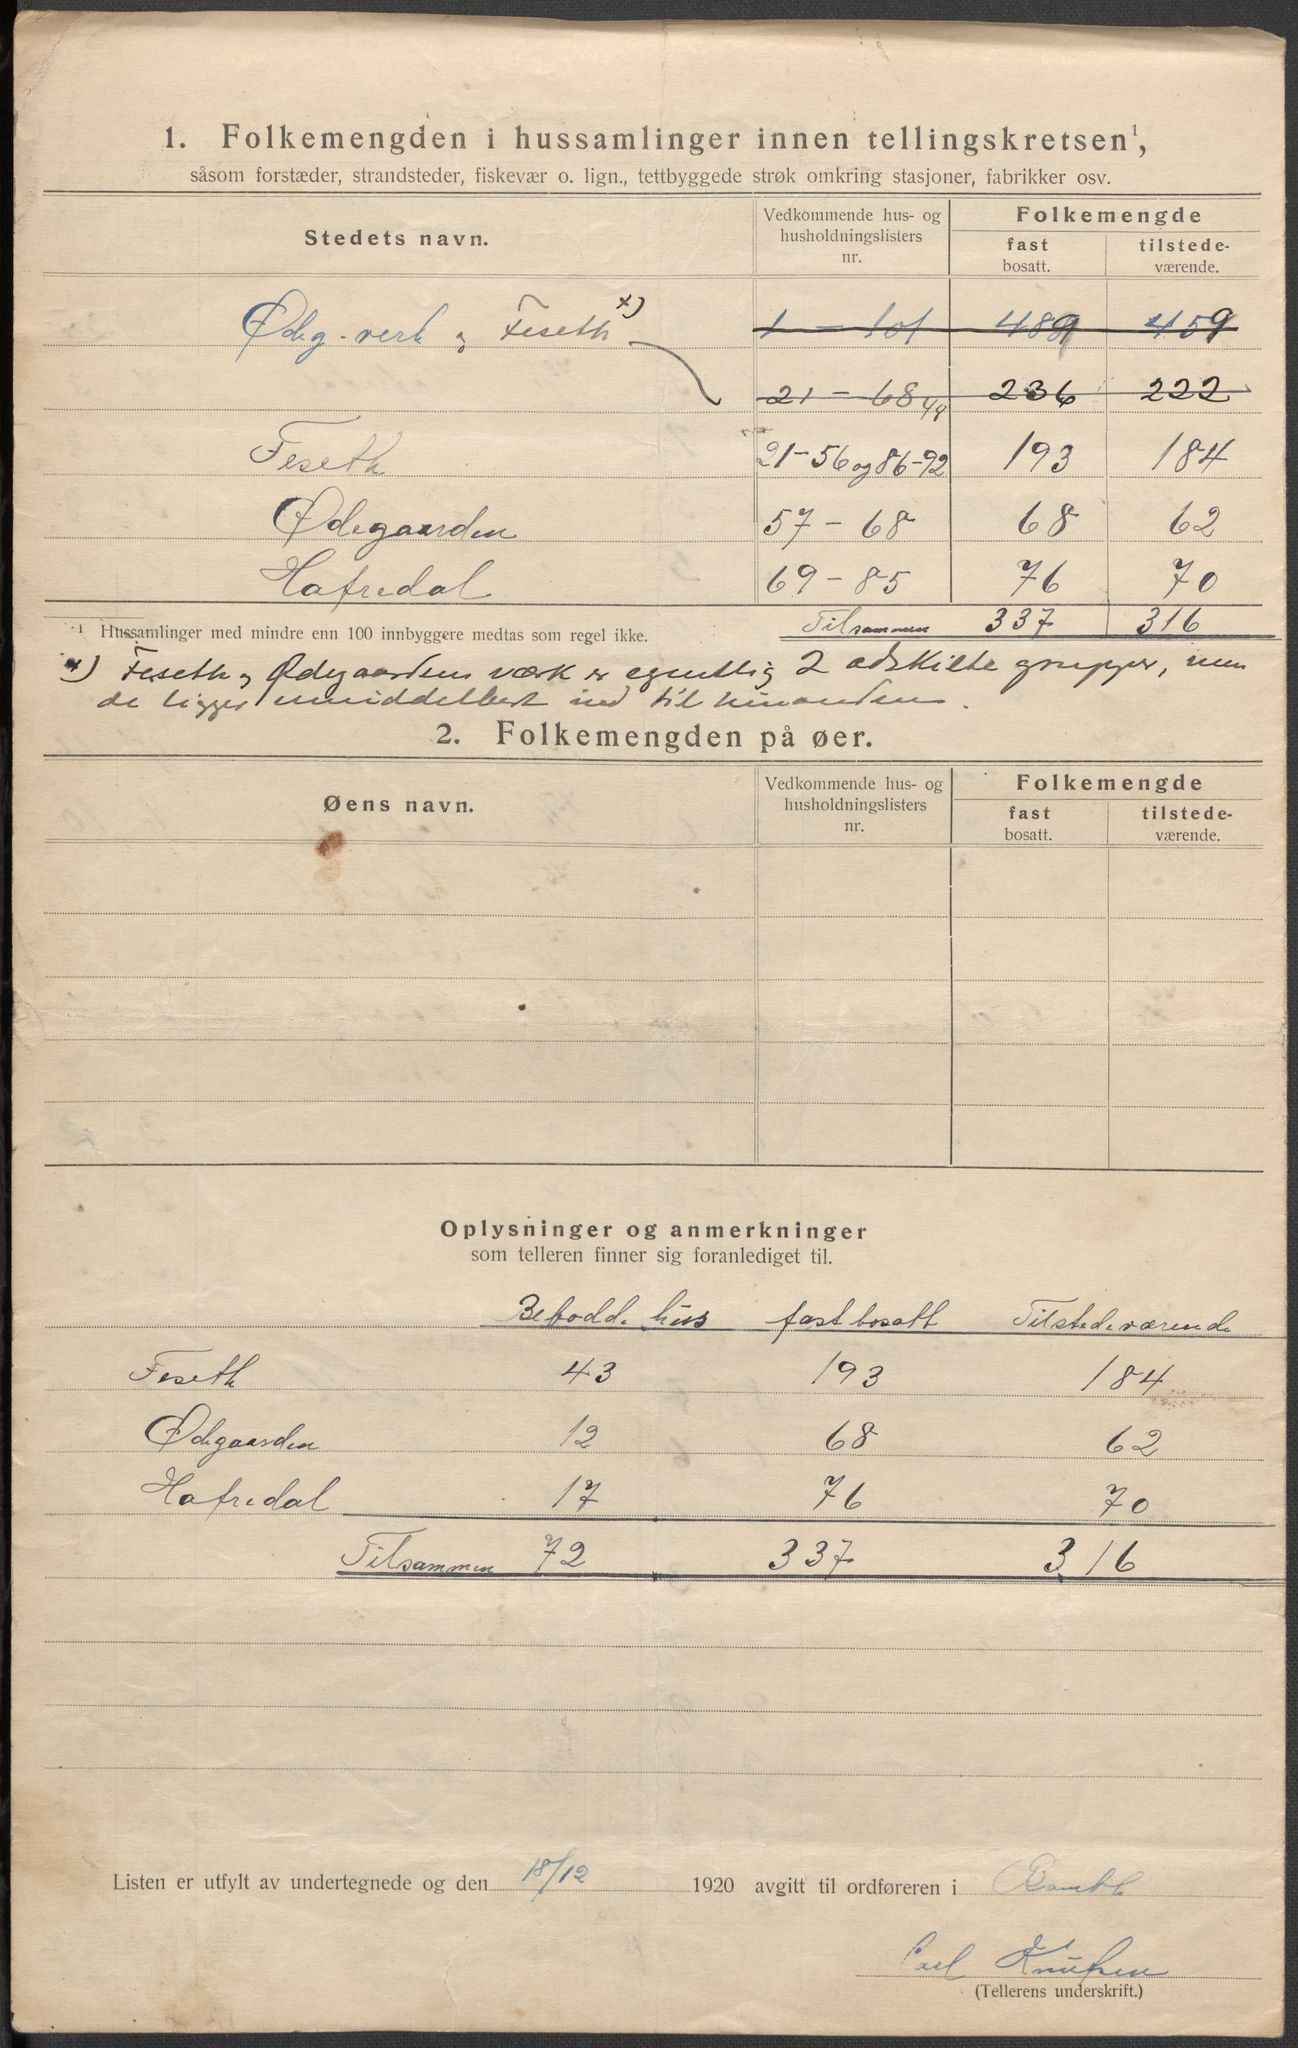 1. Folkemengden i hussamlinger innen tellingskretsen¹,
såsom forstæder, strandsteder, fiskevær o. lign., tettbyggede strøk omkring stasjoner, fabrikker osv.
Stedets navn. Vedkommende hus- og husholdningslisters nr. Folkemengde fast bosatt. tilstede-værende.
Ødeg.verk og Feseth x) 1 – 101 489 459
21 – 68 48 236 222
Feseth 21–56 og 86–92 193 184
Ødegaarden 57 – 68 68 62
Hafredal 69 – 85 76 70
Tilsammen 337 316
¹ Hussamlinger med mindre enn 100 innbyggere medtas som regel ikke.
x) Feseth og Ødegaardens værk er egentlig 2 adskilte grupper, men
de ligger umiddelbart ind til hinanden.
2. Folkemengden på øer.
Øens navn. Vedkommende hus- og husholdningslisters nr. Folkemengde fast bosatt. tilstede-værende.
Oplysninger og anmerkninger
som telleren finner sig foranlediget til.
Bebodde hus fast bosatt Tilstedeværende
Feseth 43 193 184
Ødegaarden 12 68 62
Hafredal 17 76 70
Tilsammen 72 337 316
Listen er utfylt av undertegnede og den 18/12 1920 avgitt til ordføreren i Bamble
Carl Knutsen
(Tellerens underskrift.)